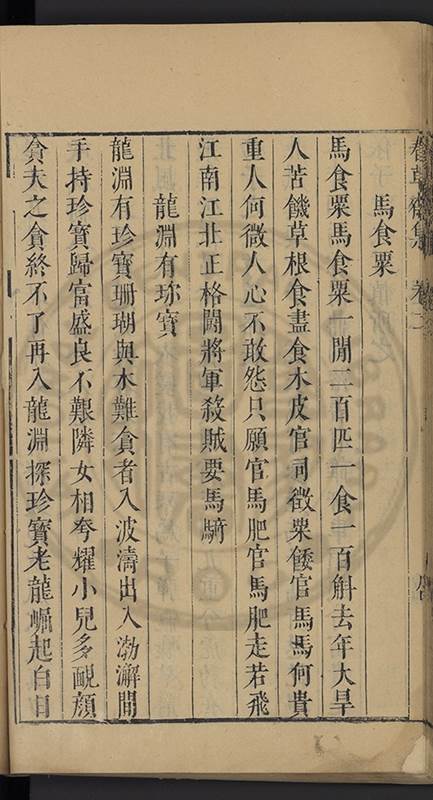 春草齋集 卷二
馬食粟
馬食粟馬食粟一閑二百匹一食一百斛去年大旱
人苦饑草根食盡食木皮官司徵粟餧官馬馬何貴
重人何微人心不敢怨只願官馬肥官馬肥走若飛
江南江北正格鬭將軍殺賊要馬騎
龍淵有珎寶
龍淵有珍寶珊瑚與木難貪者入波濤出入渤澥間
手持珍寶歸富盛良不艱隣女相夸耀小兒多靦顔
貪夫之貪終不了再入龍淵探珍寶老龍崛起白日